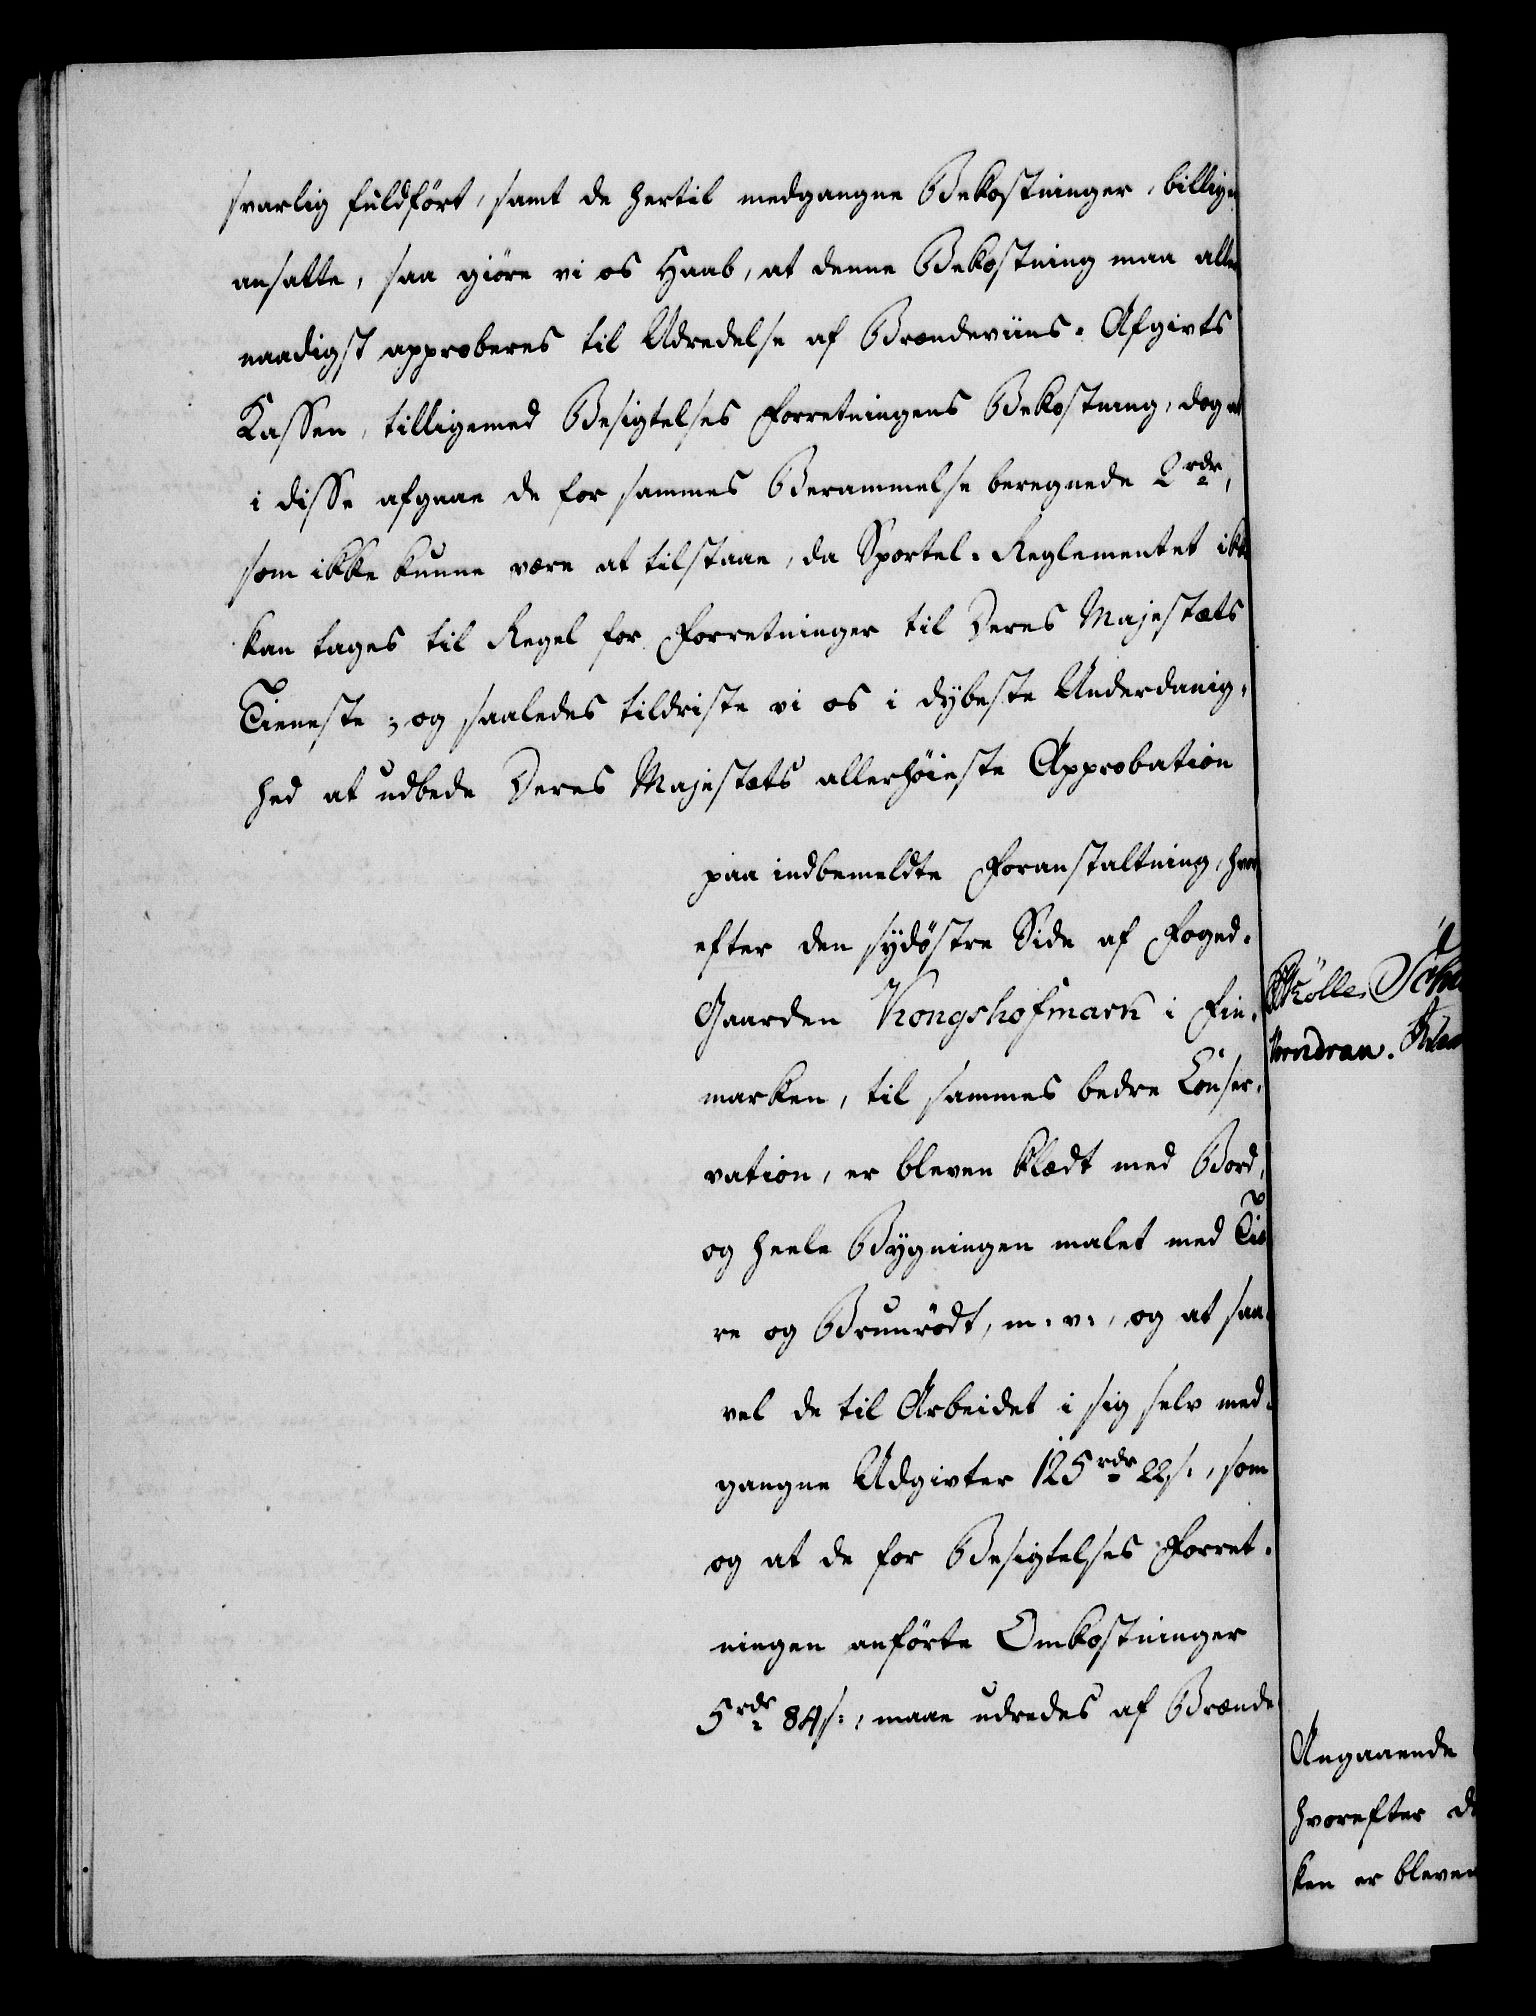 svarlig fuldført, samt de hertil medgangne Bekostninger, billigen
ansatte, saa giøre vi os Haab, at denne Bekostning maa aller
naadigst approberes til Udredelse af Brændeviins-Afgivts
Kassen, tilligemed Besigtelses Forretningens Bekostning, dog at
i disse afgaae de for sammes Berammelse beregnede 2 rdr,
som ikke kunne være at tilstaae, da Sportel-Reglementet ikke
kan tages til Regel for Forretninger til Deres Majestæts
Tieneste; og saaledes tildriste vi os i dybeste Underdanig-
hed at udbede Deres Majestæts allerhøieste Approbation
paa indbemeldte Foranstaltning, hvor
efter den sydøstre Side af Foged-
Gaarden Kongshofmark i Fin-
marken, til sammes bedre Conser-
vation, er bleven klædt med Bord,
og heele Bygningen malet med Tiæ
re og Brunrødt, m. v., og at saa-
vel de til Arbeidet i sig selv med-
gangne Udgivter 125 rdr 22 s., som
og at de for Besigtelses Forret-
ningen anførte Omkostninger
5 rdr 84 s:, maae udredes af Brænde
Angaaende
hvorefter
ken er bleven